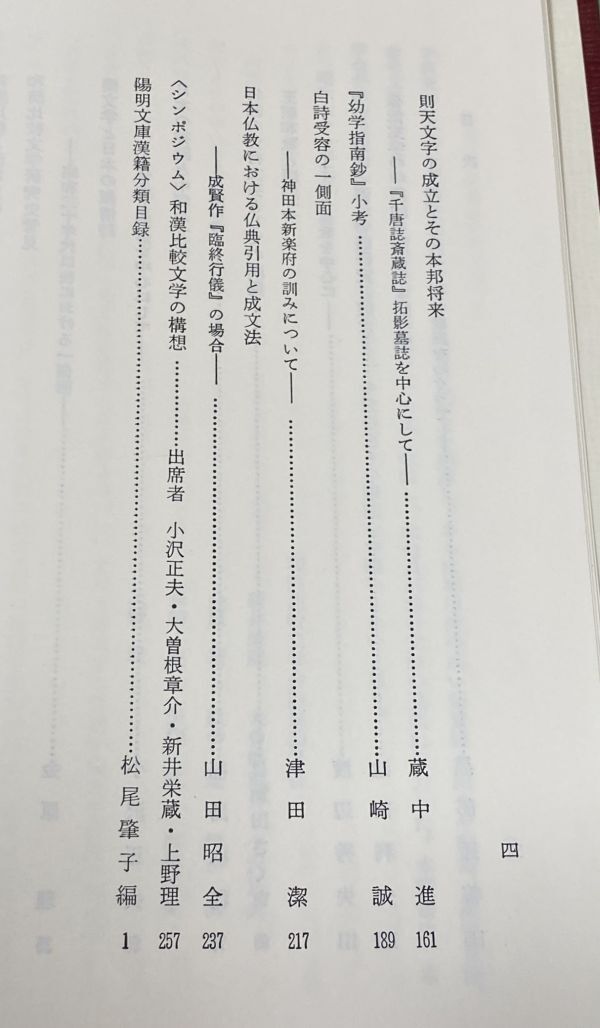 則天文字の成立とその本邦将来
――『千唐誌斎蔵誌』拓影墓誌を中心にして――……………………蔵中　進　161
『幼学指南鈔』小考……………………………………山崎　誠　189
白詩受容の一側面
――神田本新楽府の訓みについて――……………………………津田　潔　217
日本仏教における仏典引用と成文法
――成賢作『臨終行儀』の場合――……………………………山田昭全　237
〈シンポジウム〉和漢比較文学の構想……………出席者　小沢正夫・大曽根章介・新井栄蔵・上野理　257
陽明文庫漢籍分類目録……………………………………松尾肇子編　1
四